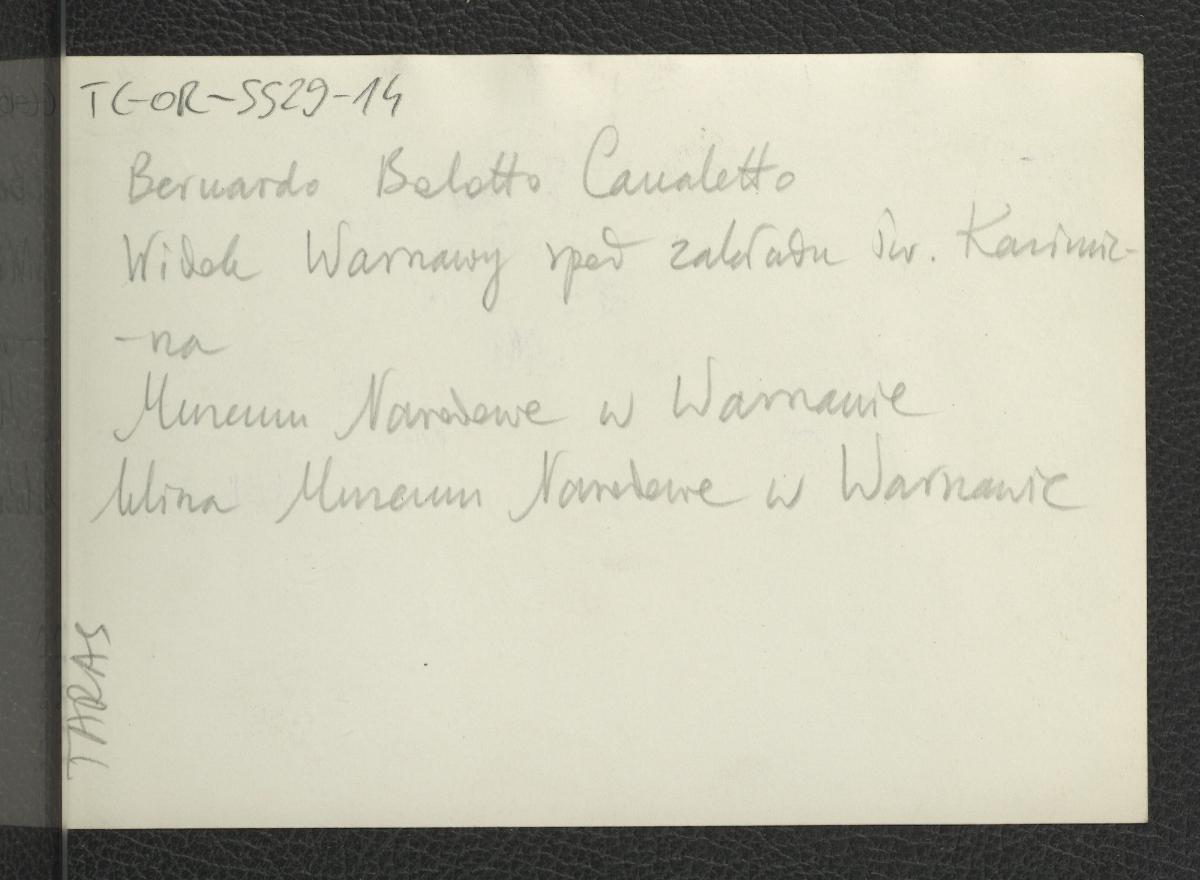 TC-OR-SS29-14
Bernardo Belotto Canaletto
Widok Warszawy sped zakładu św. Kazimie-
-rza
Muzeum Narodowe w Warszawie
klisza Muzeum Narodowe w Warszawie
TARAS